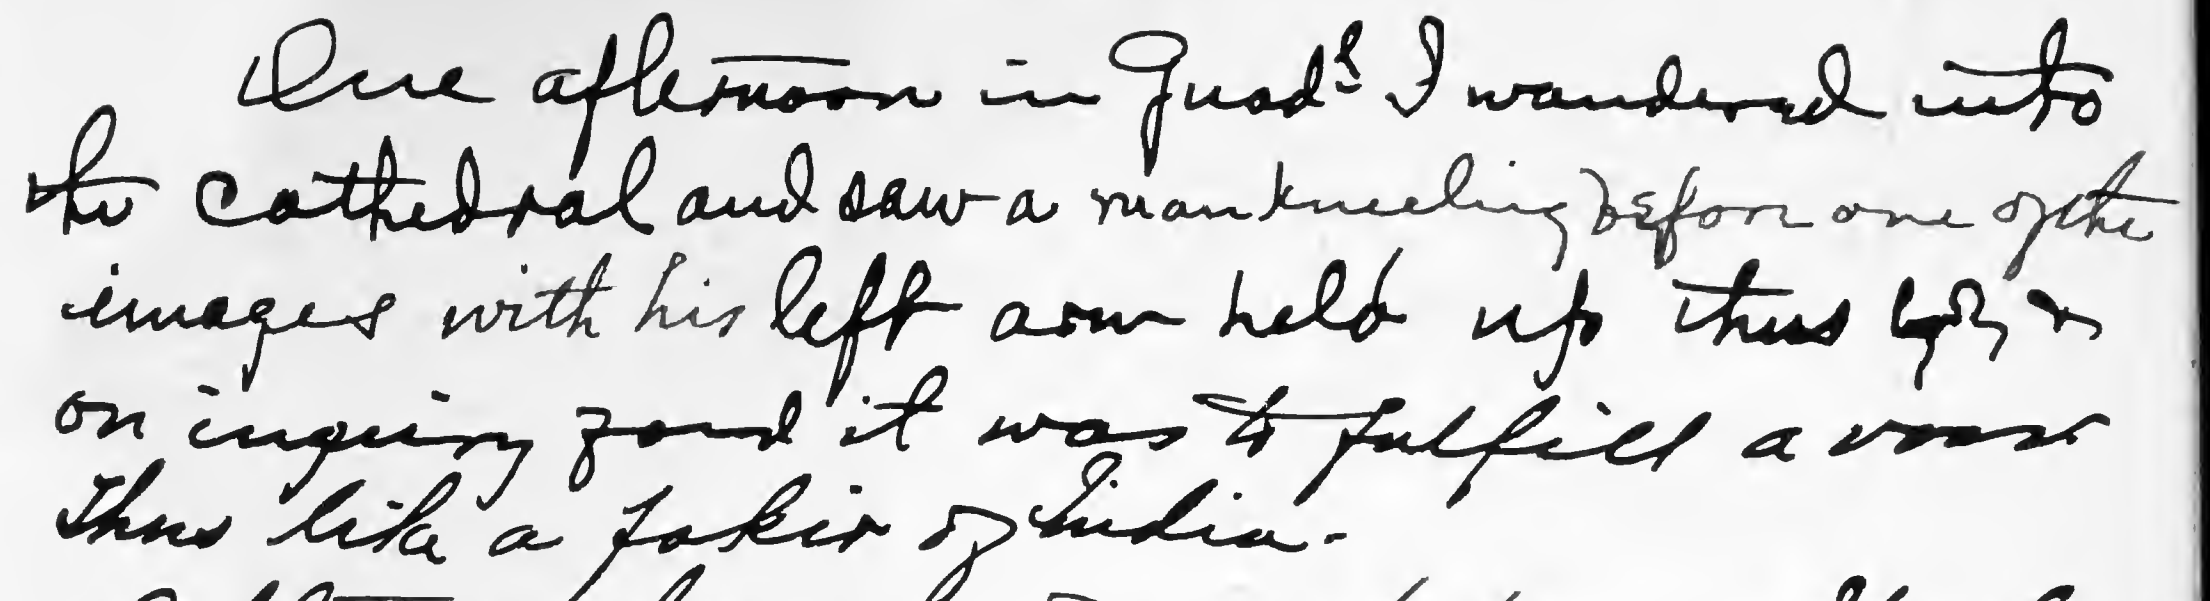 One afternoon in Guad^a I wandered into
the cathedral and saw a man kneeling before one of the
images with his left arm held up thus &
on inquiry found it was to fulfill a vow
Thus like a fakir of India.-